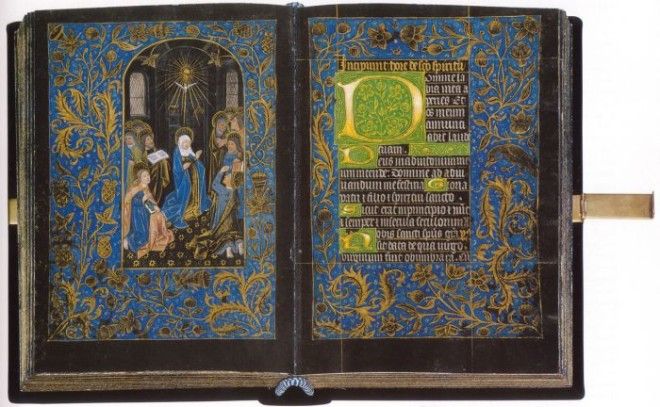 Incipiunt hore de sco spiritu
Domine la
bia mea a
peries Et
os meum
annunti
abit laude
tuam.
Deus in adiutorium meum
intende: Domine ad adiu
uandum me festina Gloria
patri et filio et spiritui sancto
Sicut erat in principio et nuc
et semper et in secula seculorum
Nobis sancti spus gra
sit data de qua uirgo
uirginum fuit obumbrata.